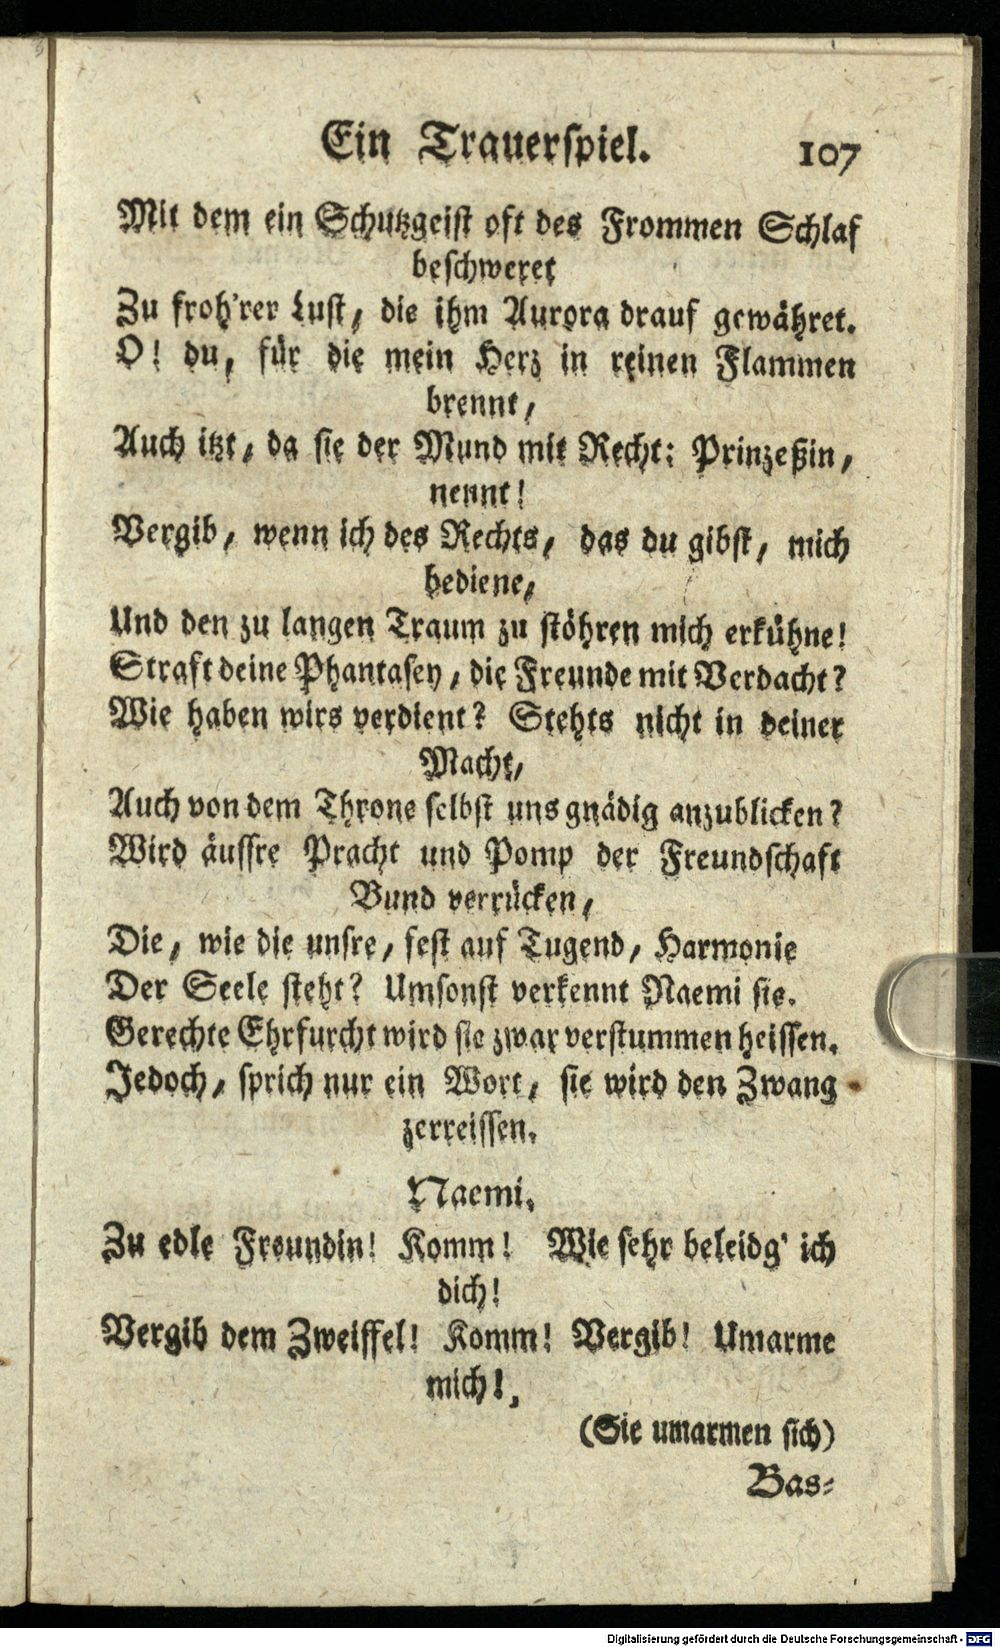 Ein Trauerspiel. 107
Mit dem ein Schutzgeist oft des Frommen Schlaf
beschweret
Zu froh'rer Lust, die ihm Aurora drauf gewähret.
O! du, für die mein Herz in reinen Flammen
brennt,
Auch itzt, da sie der Mund mit Recht: Prinzeßin,
nennt!
Vergib, wenn ich des Rechts, das du gibst, mich
bediene,
Und den zu langen Traum zu stöhren mich erkühne!
Straft deine Phantasey, die Freunde mit Verdacht?
Wie haben wirs verdient? Stehts nicht in deiner
Macht,
Auch von dem Throne selbst uns gnädig anzublicken?
Wird äussre Pracht und Pomp der Freundschaft
Bund verrücken,
Die, wie die unsre, fest auf Tugend, Harmonie
Der Seele steht? Umsonst verkennt Naemi sie.
Gerechte Ehrfurcht wird sie zwar verstummen heissen.
Jedoch, sprich nur ein Wort, sie wird den Zwang
zerreissen.
Naemi.
Zu edle Freundin! Komm! Wie sehr beleidg' ich
dich!
Vergib dem Zweiffel! Komm! Vergib! Umarme
mich!,
(Sie umarmen sich)
Bas-
Digitalisierung gefördert durch die Deutsche Forschungsgemeinschaft - DFG